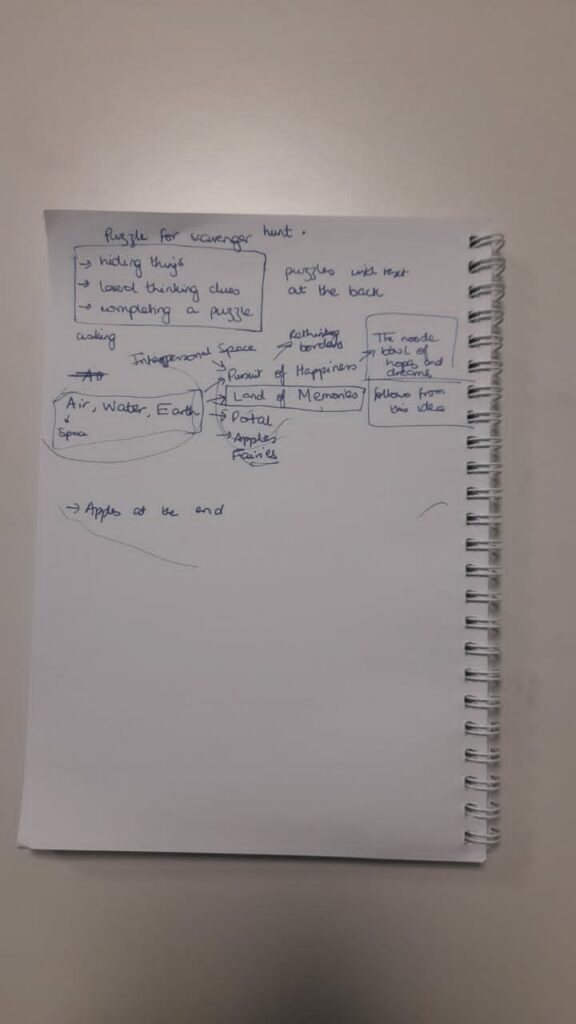 Puzzle for scavenger hunt.
→ hiding things
→ lateral thinking clues
→ completing a puzzle
puzzles with text
at the back
Interpersonal Space
Rethinking
borders
Pursuit of Happiness
The noodle
bowl of
hopes and
dreams
Air, Water, Earth
Space
Land of Memories
follows from
this idea
Portal
Apples
Fairies
→ Apples at the end